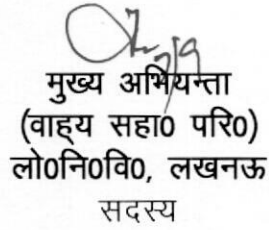 मुख्य अभियन्ता
(वाह्य सहा0 परि0)
लो0नि0वि0, लखनऊ
सदस्य